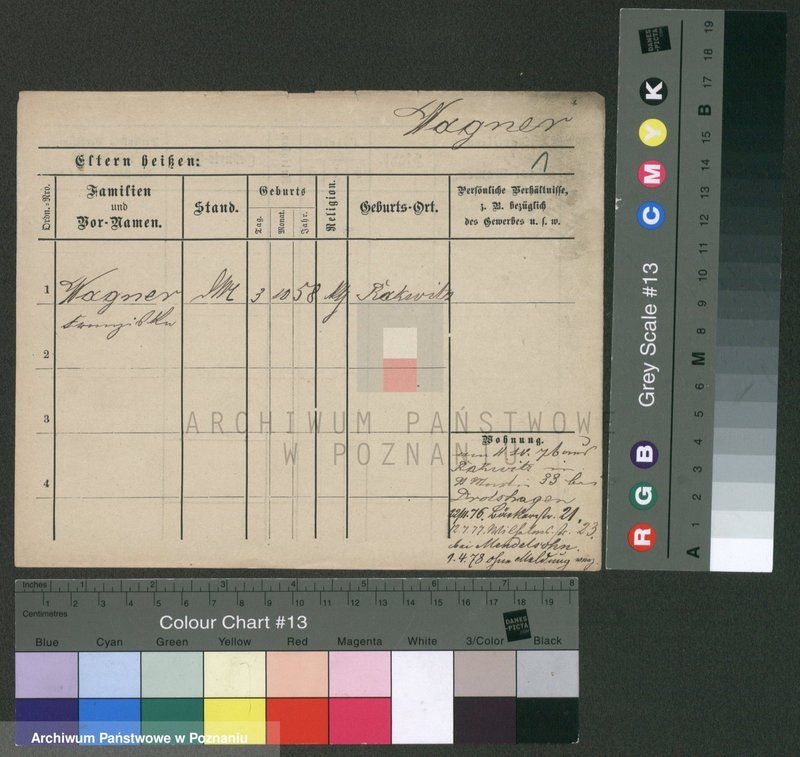 Wagner
Eltern heißen:
Ordn.-Nro.
Familien
und
Vor-Namen.
Stand.
Geburts
Tag.
Monat.
Jahr.
Religion.
Geburts-Ort.
Persönliche Verhältnisse,
z. B. bezüglich
des Gewerbes u. s. w.
1
Wagner
3
10
58
Rakwitz
Franziska
2
3
4
Wohnung.
Rakwitz in
33 bei
Drodshagen
12/11.76. Bäckerstr. 21.
12.7.77. Wilhelms str. 23.
bei Mendelsohn.
1.4.78 ohne Meldung
ARCHIWUM PAŃSTWOWE
W POZNANIU
Inches
1 2 3 4 5 6 7 8
Centimetres
1 2 3 4 5 6 7 8 9 10 11 12 13 14 15 16 17 18 19
Colour Chart #13
DANES
-PICTA
.COM
Blue Cyan Green Yellow Red Magenta White 3/Color Black
Archiwum Państwowe w Poznaniu
Grey Scale #13
DANES
-PICTA
.COM
R G B C M Y K
A 1 2 3 4 5 6 M 8 9 10 11 12 13 14 15 B 17 18 19